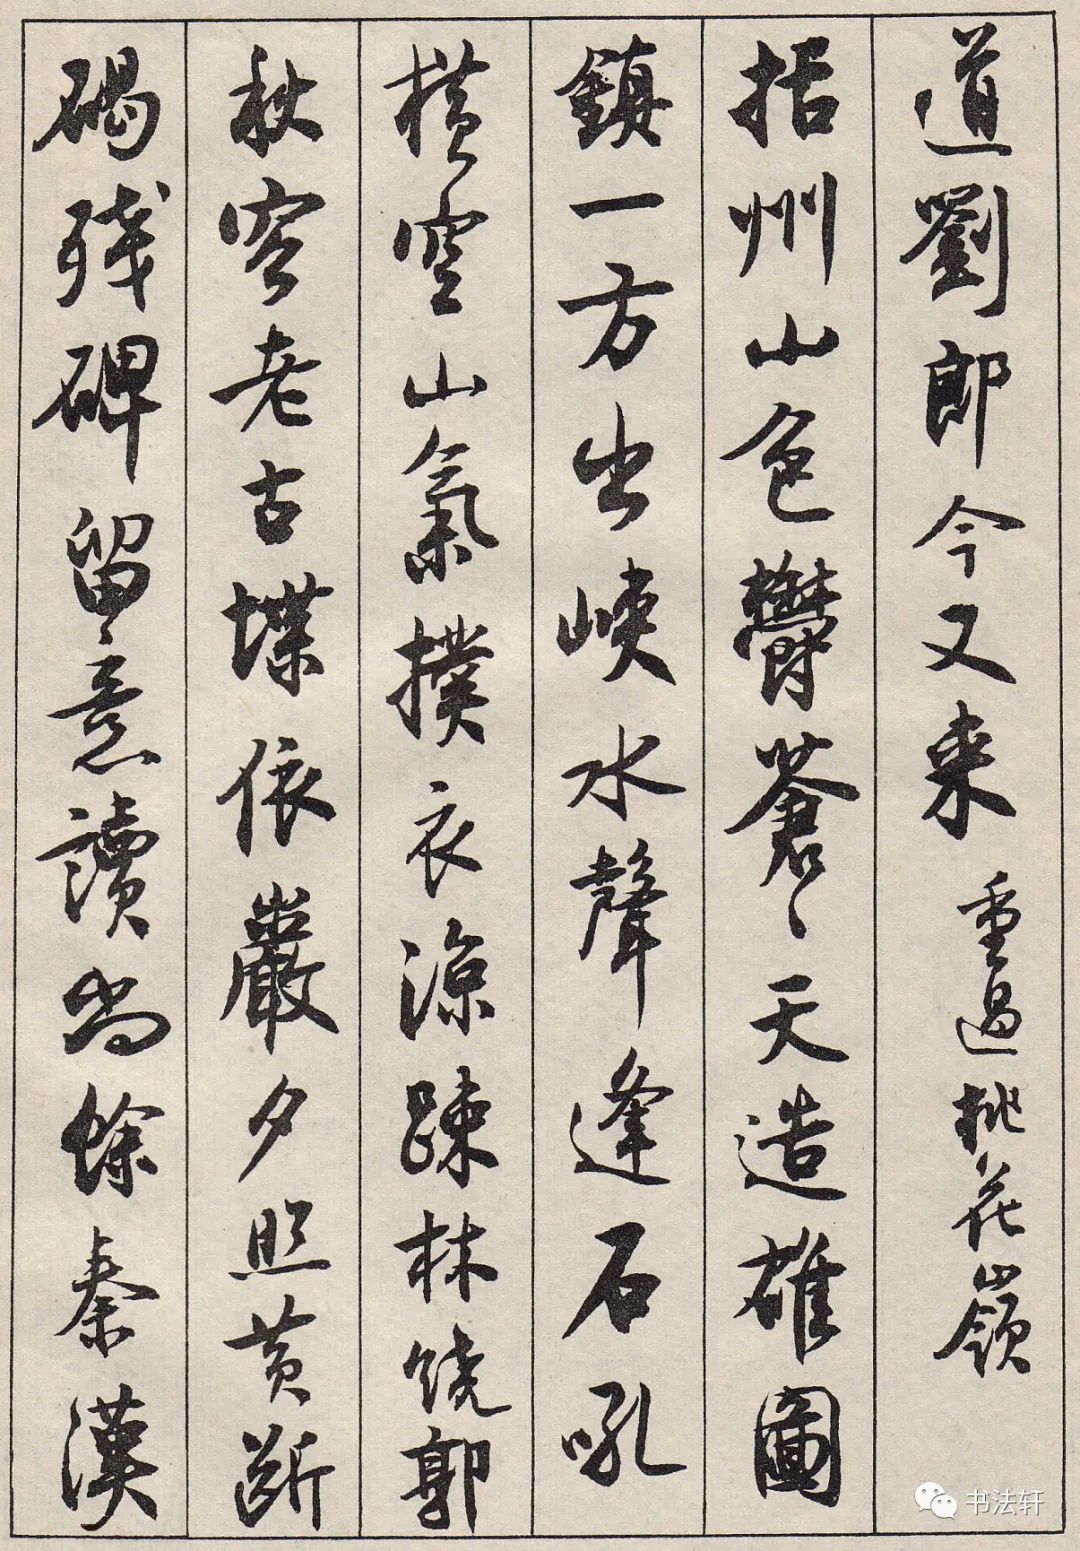 道劉郎今又来 重過桃花嶺
括州山色鬱蒼〻天造雄圖
鎮一方出峡水聲逢石吼
横空山氣撲衣涼疎林饶郭
秋容老古堞依巖夕照黄断
碣残碑留意讀尚餘秦漢
书法轩